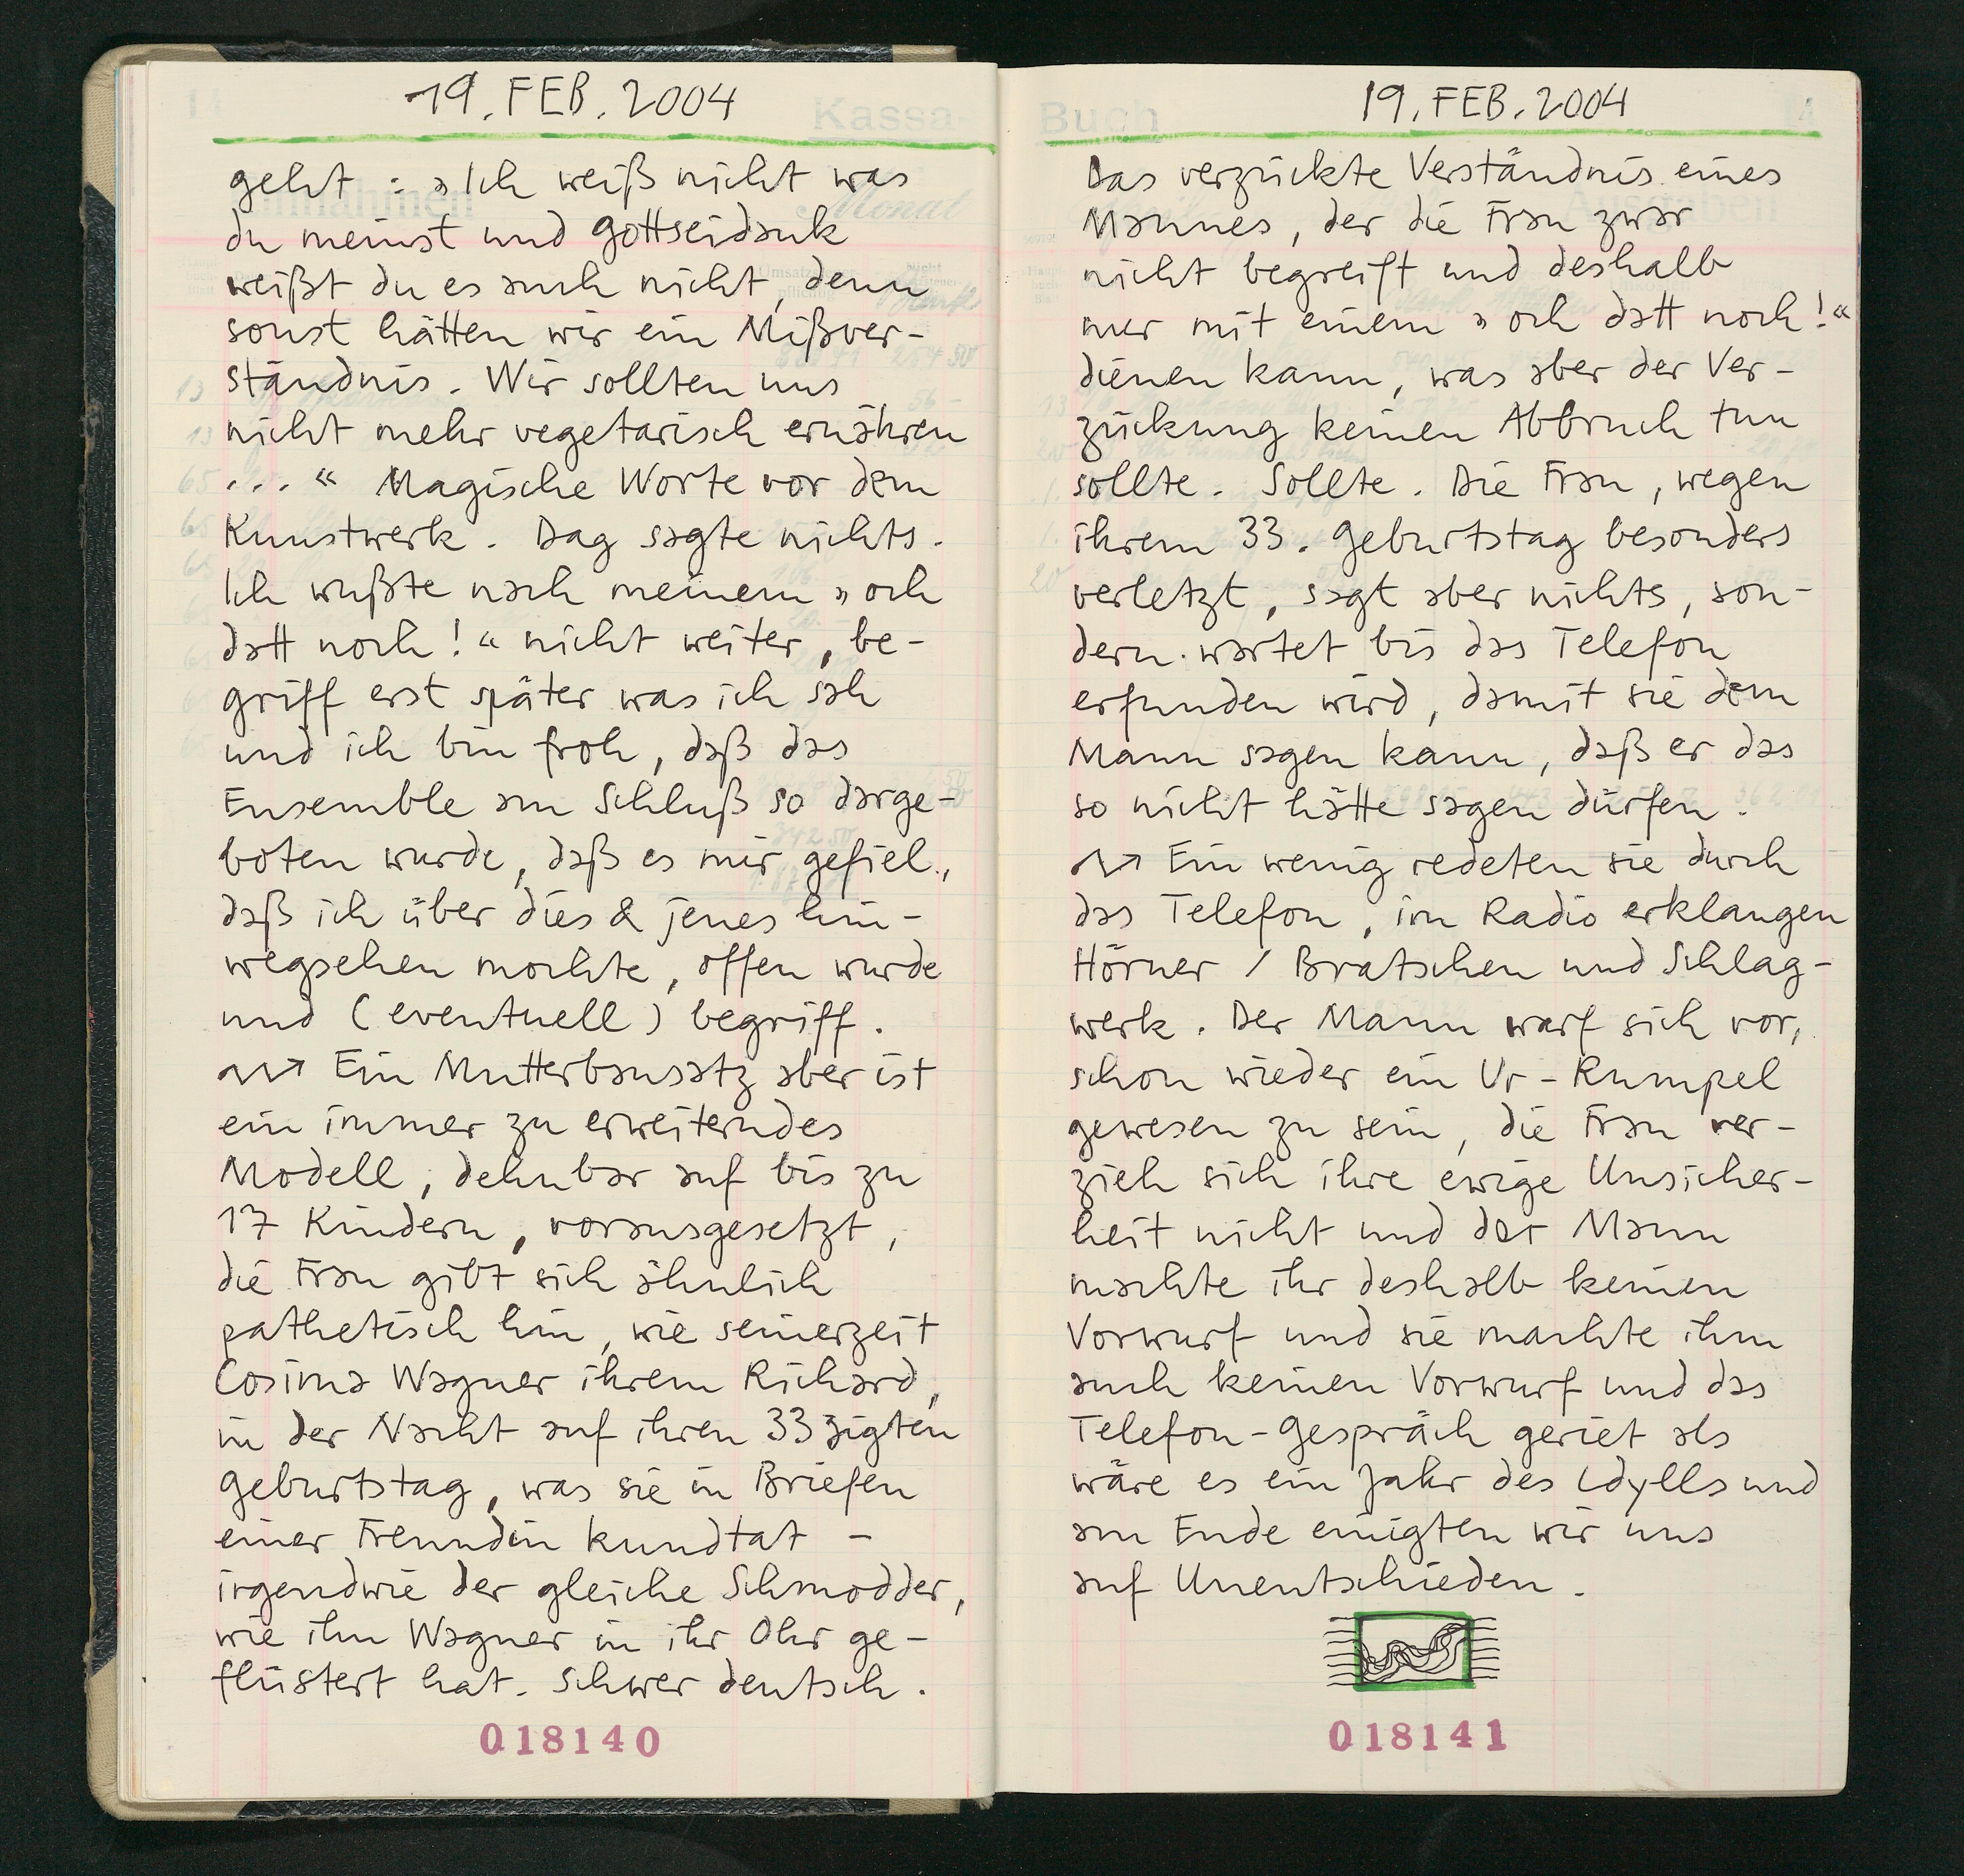 19. FEB. 2004
geht : » Ich weiß nicht was
du meinst und Gottseidank
weißt du es auch nicht, denn
sonst hätten wir ein Mißver-
ständnis. Wir sollten uns
nicht mehr vegetarisch ernähren
... « Magische Worte vor dem
Kunstwerk. Dag sagte nichts.
Ich wußte nach meinem » och
datt noch! « nicht weiter, be-
griff erst später was ich sah
und ich bin froh, daß das
Ensemble am Schluß so darge-
boten wurde, daß es mir gefiel.,
daß ich über dies & jenes hin-
wegsehen mochte, offen wurde
und (eventuell) begriff.
Ein Mutterbausatz aber ist
ein immer zu erweiterndes
Modell, dehnbar auf bis zu
17 Kindern, vorausgesetzt,
die Frau gibt sich ähnlich
pathetisch hin, wie seinerzeit
Cosima Wagner ihrem Richard,
in der Nacht auf ihren 33zigten
Geburtstag, was sie in Briefen
einer Freundin kundtat –
irgendwie der gleiche Schmodder,
wie ihn Wagner in ihr Ohr ge-
flüstert hat. Schwer deutsch.
018140
Kassa-
Buch
19. FEB. 2004
Das verzückte Verständnis eines
Mannes, der die Frau zwar
nicht begreift und deshalb
nur mit einem » och datt noch! «
dienen kann, was aber der Ver-
zückung keinen Abbruch tun
sollte. Sollte. Die Frau, wegen
ihrem 33. Geburtstag besonders
verletzt, sagt aber nichts, son-
dern wartet bis das Telefon
erfunden wird, damit sie dem
Mann sagen kann, daß er das
so nicht hätte sagen dürfen.
Ein wenig redeten sie durch
das Telefon, im Radio erklangen
Hörner / Bratschen und Schlag-
werk. Der Mann warf sich vor,
schon wieder ein Ur-Rumpel
gewesen zu sein, die Frau ver-
zieh sich ihre ewige Unsicher-
heit nicht und der Mann
machte ihr deshalb keinen
Vorwurf und sie machte ihm
auch keinen Vorwurf und das
Telefon-Gespräch geriet als
wäre es ein Jahr des Idylls und
am Ende einigten wir uns
auf Unentschieden.
018141